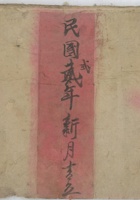 民國貳年新月吉立
成